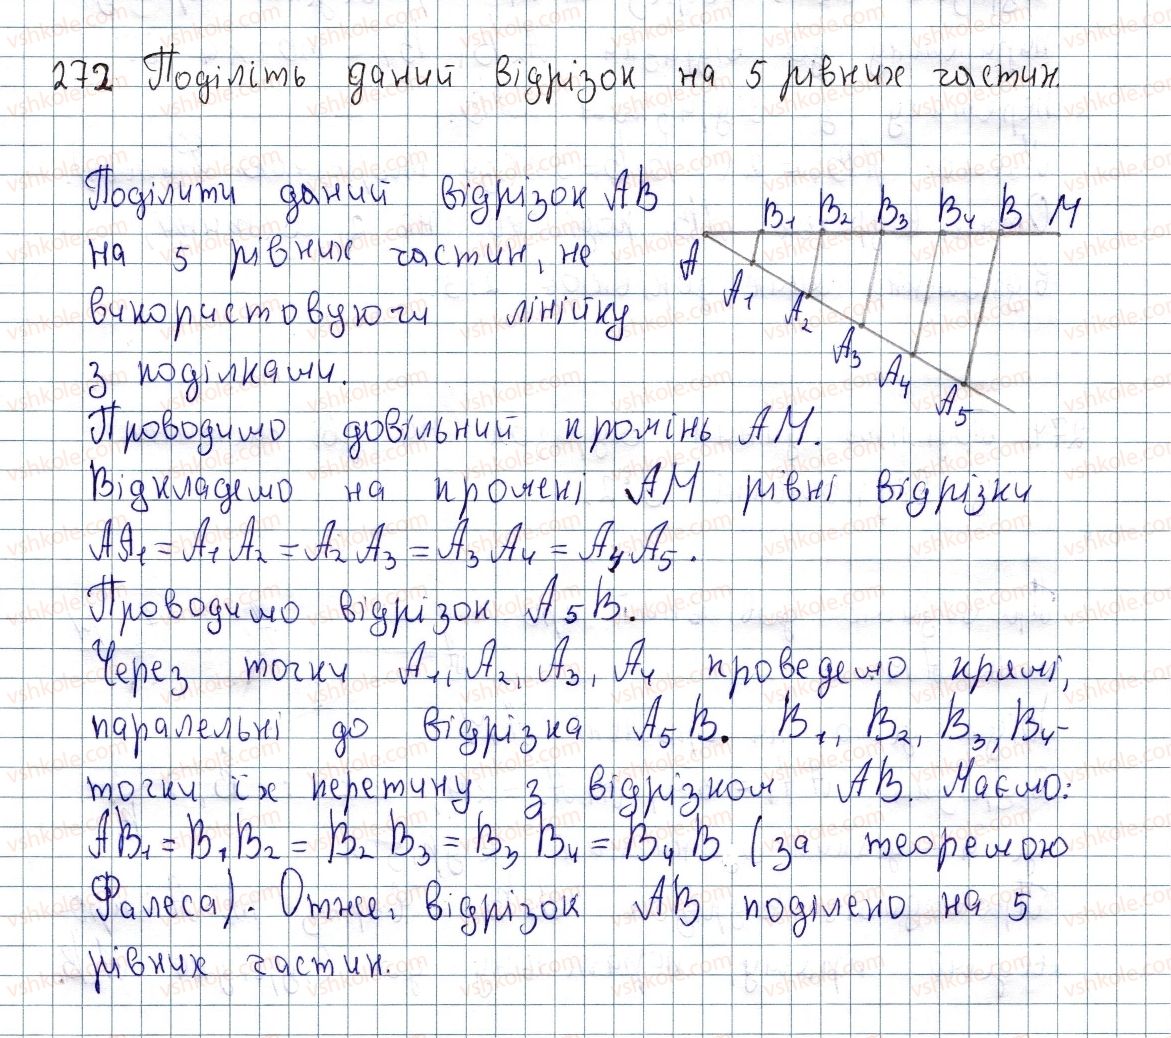 272 Поділіть даний відрізок на 5 рівних частин.
Поділити даний відрізок AB
на 5 рівних частин, не
використовуючи лінійку
з поділками.
B₁ B₂ B₃ B₄ B M
A A₁ A₂ A₃ A₄ A₅
Проводимо довільний промінь AM.
Відкладемо на промені AM рівні відрізки
AA₁ = A₁A₂ = A₂A₃ = A₃A₄ = A₄A₅.
Проводимо відрізок A₅B.
Через точки A₁, A₂, A₃, A₄ проведемо прямі,
паралельні до відрізка A₅B. B₁, B₂, B₃, B₄-
точки їх перетину з відрізком AB. Маємо:
AB₁ = B₁B₂ = B₂B₃ = B₃B₄ = B₄B (за теоремою
Фалеса). Отже, відрізок AB поділено на 5
рівних частин.
vshkole.com